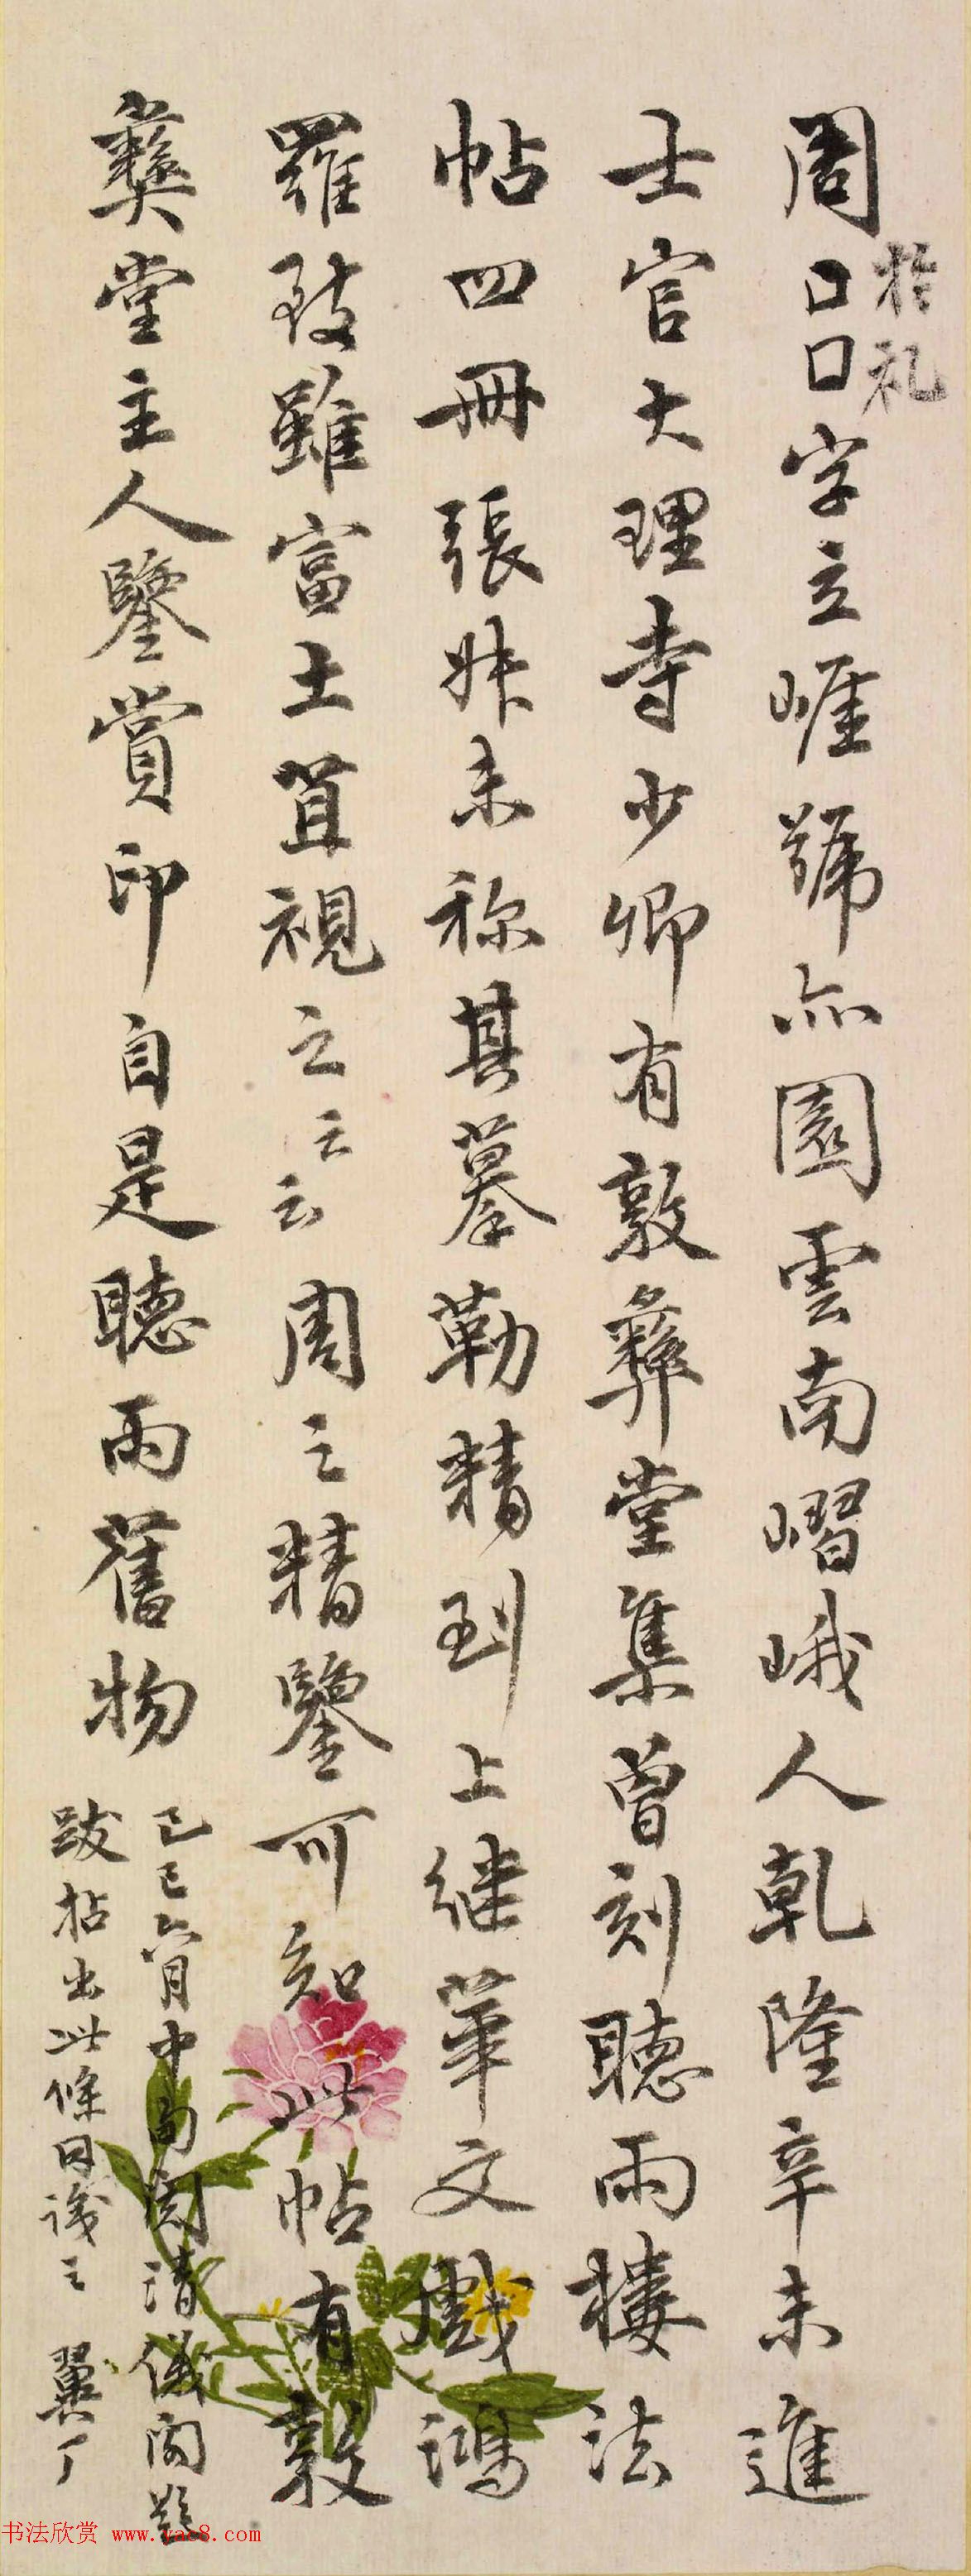 周□□字立崕號亦園雲南嶍峨人乾隆辛未進
於礼
士官大理寺少卿有敦彝堂集曾刻聽雨樓法
帖四冊張叔未称其摹勒精到上継華文戲鴻
羅致雖富土苴視之云云周之精鑒可知此帖有敦
彝堂主人鑒賞印自是聽雨舊物
己巳六月中旬閱清儀閣題
跋拈出此條因識之 翼丁
书法欣赏 www.yac8.com